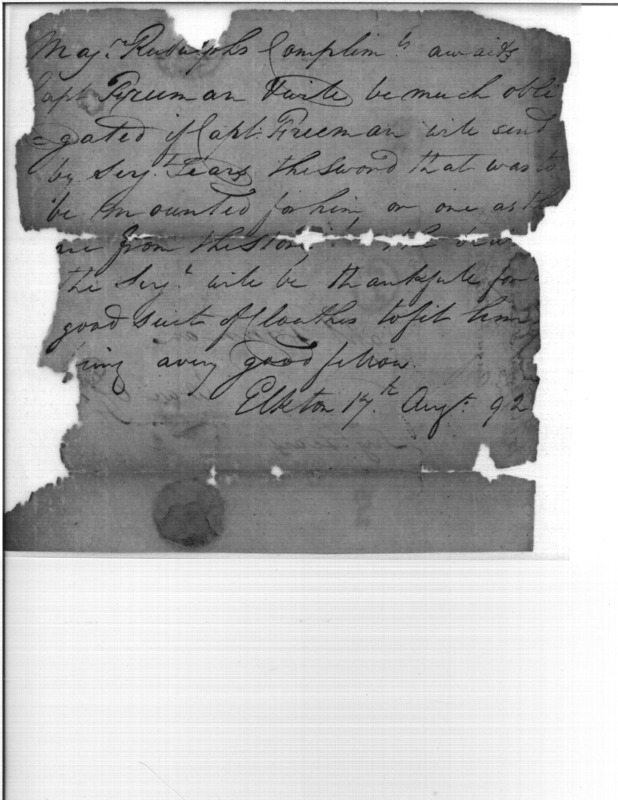 Majr. Rudulphs Complimts. awaits
Capt. Freeman & will be much obli
=gated if Capt. Freeman will send
by Serjt. Tears the Sword that was to
be mounted for him or one as th
from the
the Serjt. will be thankfull for
good Suit of Cloathes to fit him
ing a very good fellow.
Elkton 17th. Augt. 92